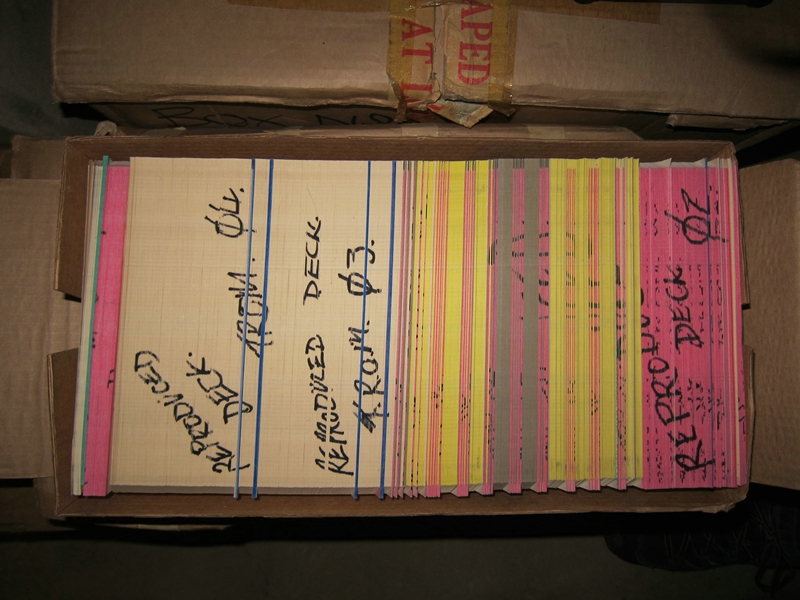 APED
AT IN
BOX No
REPRODUCED
DECK.
ROM. Ø4.
REPRODUCED DECK.
ROM. Ø3.
REPRODU
DECK Ø2.